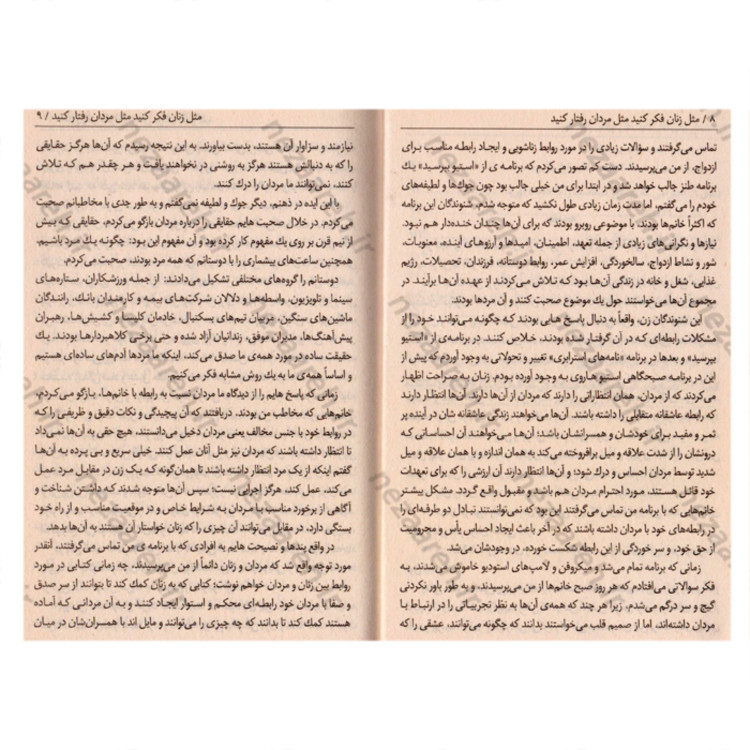 ۸ / مثل زنان فکر کنید مثل مردان رفتار کنید
تماس می‌گرفتند و سؤالات زیادی را در مورد روابط زناشویی و ایجاد رابطه مناسب برای
ازدواج، از من می‌پرسیدند. دست کم تصور می‌کردم که برنامه ی از «استیو بپرسید» یک
برنامه طنز جالب خواهد شد و در ابتدا برای من خیلی جالب بود چون جوک‌ها و لطیفه‌های
خودم را می‌گفتم، اما مدت زمان زیادی طول نکشید که متوجه شدم، شنوندگان این برنامه
که اکثراً خانم‌ها بودند، با موضوعی روبرو بودند که برای آن‌ها چندان خنده‌دار هم نبود.
نیازها و نگرانی‌های زیادی از جمله تعهد، اطمینان، امیدها و آرزوهای آینده، معنویات،
شور و نشاط ازدواج، سالخوردگی، افزایش عمر، روابط دوستانه، فرزندان، تحصیلات، رژیم
غذایی، شغل و خانه در زندگی آن‌ها بود که تلاش می‌کردند از عهده آن‌ها برآیند. در
مجموع آن‌ها می‌خواستند حول یک موضوع صحبت کنند و آن مردها بودند.
این شنوندگان زن، واقعاً به دنبال پاسخ هایی بودند که چگونه می‌توانند خود را از
مشکلات رابطه‌ای که در آن گرفتار شده بودند، خلاص کنند. در برنامه‌ی از «استیو
بپرسید» و بعدها در برنامه «نامه‌های استرابری» تغییر و تحولاتی به وجود آوردم که پیش از
این در برنامه صبحگاهی استیو هاروی به وجود آورده بودم. زنان به صراحت اظهار
می‌کردند که از مردان، همان انتظاراتی را دارند که مردان از آن‌ها دارند. آن‌ها انتظار دارند
که رابطه عاشقانه متقابلی را داشته باشند. آن‌ها می‌خواهند زندگی عاشقانه شان در آینده پر
ثمر و مفید برای خودشان و همسرانشان باشد؛ آن‌ها می‌خواهند آن احساساتی که
درونشان را از شدت علاقه و میل برافروخته می‌کند به همان اندازه و با همان علاقه و میل
شدید توسط مردان احساس و درک شود؛ و آن‌ها انتظار دارند آن ارزشی را که برای تعهدات
خود قائل هستند، مورد احترام مردان هم باشد و مقبول واقع گردد. مشکل بیشتر
خانم‌هایی که با برنامه من تماس می‌گرفتند این بود که نمی‌توانستند تبادل دو طرفه‌ای را
در رابطه‌های خود با مردان داشته باشند که در آخر باعث ایجاد احساس یأس و محرومیت
از حق خود، و سر خوردگی از این رابطه شکست خورده، در وجودشان می‌شد.
زمانی که برنامه تمام می‌شد و میکروفن و لامپ‌های استودیو خاموش می‌شدند، به
فکر سوالاتی می‌افتادم که هر روز صبح خانم‌ها از من می‌پرسیدند، و به طور باور نکردنی
گیج و سر درگم می‌شدم. زیرا هر چند که همه‌ی آن‌ها به نظر تجربیاتی را در ارتباط با
مردان داشته‌اند، اما از صمیم قلب می‌خواستند بدانند که چگونه می‌توانند، عشقی را که
مثل زنان فکر کنید مثل مردان رفتار کنید / ۹
نیازمند و سزاوار آن هستند، بدست بیاورند. به این نتیجه رسیدم که آن‌ها هرگز حقایقی
را که به دنبالش هستند هرگز به روشنی در نخواهند یافت و هر چقدر هم که تلاش
کنند، نمی‌توانند ما مردان را درک کنند.
با این ایده در ذهنم، دیگر جوک و لطیفه نمی‌گفتم و به طور جدی با مخاطبانم صحبت
می‌کردم. در خلال صحبت هایم حقایقی را درباره مردان بازگو می‌کردم، حقایقی که بیش
از نیم قرن بر روی یک مفهوم کار کرده بود و آن مفهوم این بود: چگونه یک مرد باشیم.
همچنین ساعت‌های بیشماری را با دوستانم که همه مرد بودند، صحبت می‌کردم.
دوستانم را گروه‌های مختلفی تشکیل می‌دادند: از جمله ورزشکاران، ستاره‌های
سینما و تلویزیون، واسطه‌ها و دلالان شرکت‌های بیمه و کارمندان بانک، رانندگان
ماشین‌های سنگین، مربیان تیم‌های بسکتبال، خادمان کلیسا و کشیش‌ها، رهبران
پیش‌آهنگ‌ها، مدیران موفق، زندانیان آزاد شده و حتی برخی کلاهبردارها بودند. یک
حقیقت ساده در مورد همه‌ی ما صدق می‌کند، اینکه ما مردها آدم‌های ساده‌ای هستیم
و اساساً همه‌ی ما به یک روش مشابه فکر می‌کنیم.
زمانی که پاسخ هایم را از دیدگاه ما مردان نسبت به رابطه با خانم‌ها، بازگو می‌کردم،
خانم‌هایی که مخاطب من بودند، دریافتند که آن پیچیدگی و نکات دقیق و ظریفی را که
در روابط خود با جنس مخالف یعنی مردان دخیل می‌دانستند، هیچ حقی به آن‌ها نمی‌داد
تا انتظار داشته باشند که مردان نیز مثل آنان عمل کنند. خیلی سریع و بی پرده به آن‌ها
گفتم اینکه از یک مرد انتظار داشته باشند تا همان‌گونه که یک زن در مقابل مرد عمل
می‌کند، عمل کند، هرگز اجرایی نیست؛ سپس آن‌ها متوجه شدند که داشتن شناخت و
آگاهی از برخورد مناسب با مردان به شرایط خاص و در موقعیت مناسب و از راه خود
بستگی دارد، در مقابل می‌توانند آن چیزی را که زنان خواستار آن هستند به آن‌ها بدهد.
در واقع پندها و نصیحت هایم به افرادی که با برنامه ی من تماس می‌گرفتند، آنقدر
مورد توجه واقع شد که مردان و زنان دائماً از من می‌پرسیدند، چه زمانی کتابی در مورد
روابط بین زنان و مردان خواهم نوشت؛ کتابی که به زنان کمک کند تا بتوانند از سر صدق
و صفا با مردان خود رابطه‌ای محکم و استوار ایجاد کنند و به آن مردانی که آماده
هستند کمک کند تا بدانند که چه چیزی را می‌توانند و مایل اند با همسران‌شان در میان